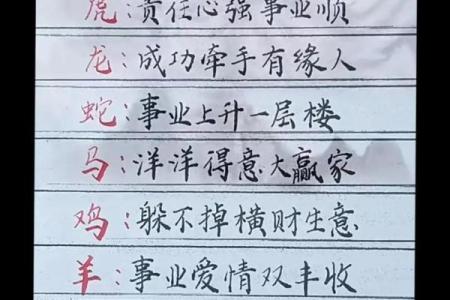 虎：责任心强事业顺
龙：成功牵手有缘人
蛇：事业上升一层楼
马：洋洋得意大赢家
鸡：躲不掉横财生意
羊：事业爱情双丰收